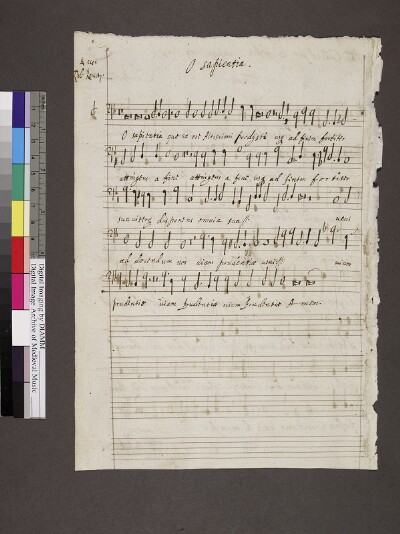 O sapientia.
O sapientia quæ ex ore Altissimi prodisti usq ad finem fortiter
attingens a fine attingens a fine usq ad finem fortiter
suaviterq disponens omnia
veni
ad docendum nos viam prudentiæ
prudentiæ viam prudentiæ viam prudentiæ A-men.
Digital Imaging by DIAMM
Digital Image Archive of Medieval Music